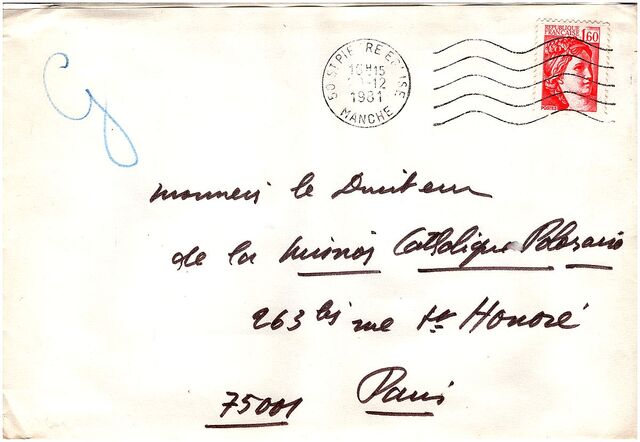 REPUBLIQUE
FRANCAISE 1,60
POSTES
50 ST PIERRE EGLISE
16H15
12
1981
MANCHE
monsieur le Directeur
de la Mission Catholique Polonaise
263 bis rue St Honoré
75001 Paris